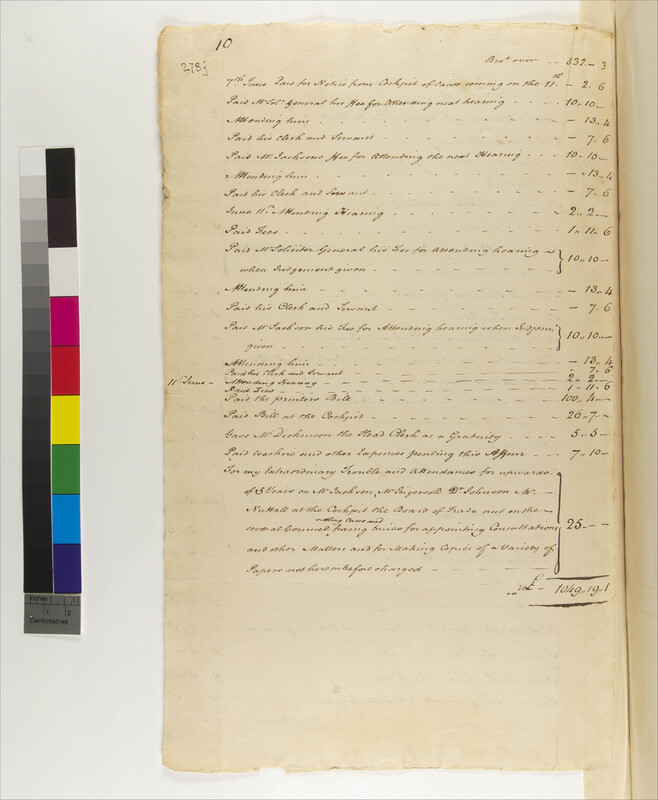 10
278j
Bro.t over .. 832 - 3
7th June Paid for Notice from Cockpit of Cause coming on the 11th - 2. 6
Paid Mr Solr General his Fee for Attending next hearing - - - - 10,, 10 -
Attending him - - - - - - 13,, 4
Paid his Clerk and Servant - - - - - 7. 6
Paid Mr Jacksons Fee for Attending the next Hearing - - - 10 - 10 -
Attending him - - - - - - ,, 13,, 4
Paid his Clerk and Servant - - - - - 7,, 6
June 11th Attending Hearing - - - - - 2,, 2 -
Paid Fees - - - - - - 1,, 11,, 6
Paid Mr Solicitor General his Fee for Attending hearing
when Judgement given - - - - 10,, 10 -
Attending him - - - - - - 13,, 4
Paid his Clerk and Servant - - - - - 7. 6
Paid Mr Jackson his Fee for Attending hearing when
given - - - - - 10,, 10 -
Attending him - - - - - - 13,, 4
Paid his Clerk and Servant - - - - 7. 6
11th June - Attending Hearing - - - - 2,, 2 -
Paid Fees - - - - 1 - 11 - 6
Paid the printers Bill - - - - 100,, 4 -
Paid Bill at the Cockpit - - - - 26,, 7 -
Gave Mr Dickenson the Head Clerk as a Gratuity - - - - 5,, 5 -
Paid coachire and other Expences pending this Affair - - - 7,, 10 -
For my Extraordinary Trouble and Attendances for upwards
of 8 Years on Mr Jackson, Mr Ingersold Dr Johnson Mr
Nuttall at the Cockpit the Board of Trade and on the
several Councel, fixing times for appointing Consultations 25 - -
and other Matters and for Making Copies of a Variety of
Papers not herein before charged - - - -
£ - 1049,, 19,, 1
Inches
1 2
Centimetres